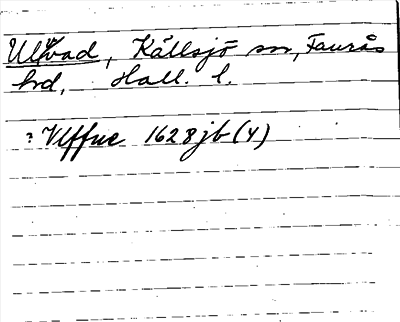 Ulvad, Källsjö sn, Faurås
hd, Hall. l.
? Vlffue 1628 jb (4)